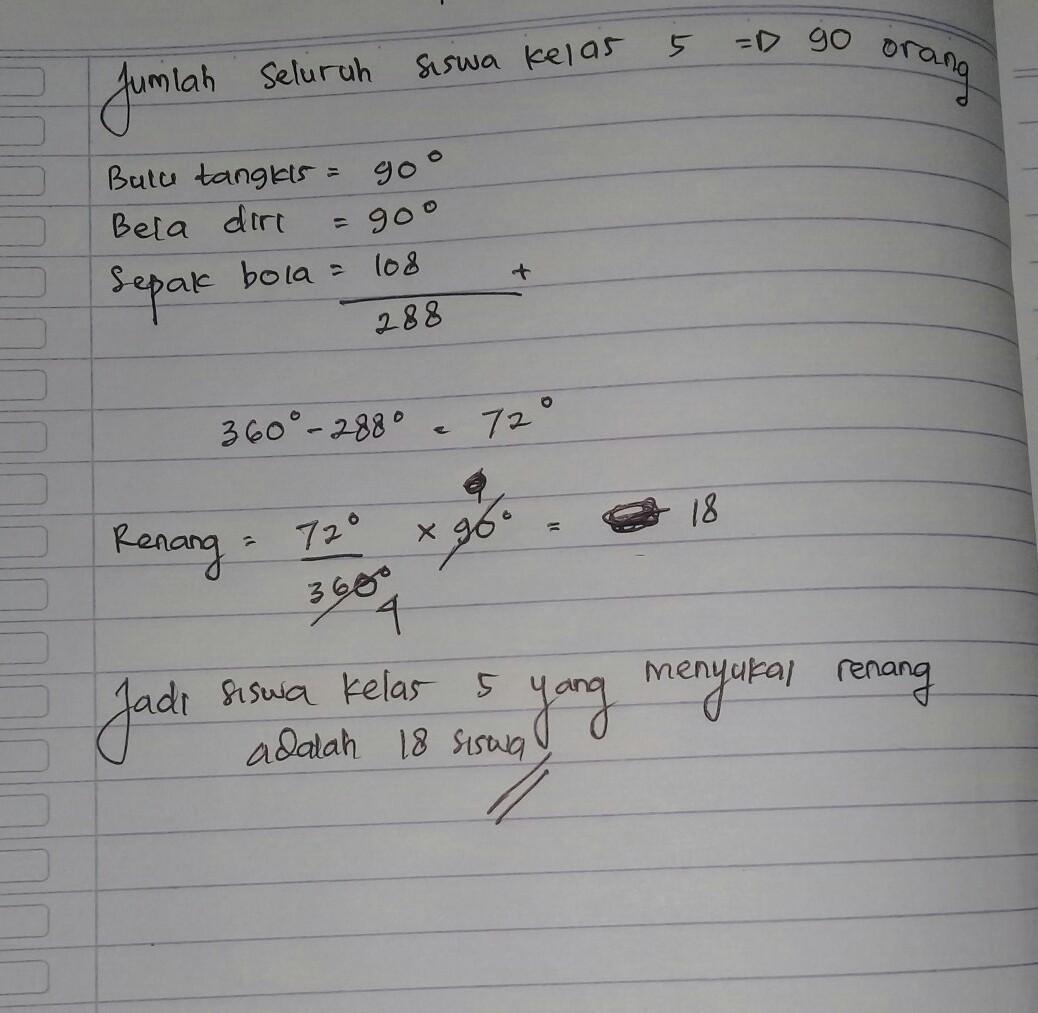 Jumlah Seluruh siswa kelas 5 => 90 orang
Bulu tangkis = 90°
Bela diri = 90°
Sepak bola = 108 +
288
360° - 288° = 72°
9
Renang = 72° × 90° = 18
360°
4
Jadi siswa kelas 5 yang menyukai renang
adalah 18 siswa